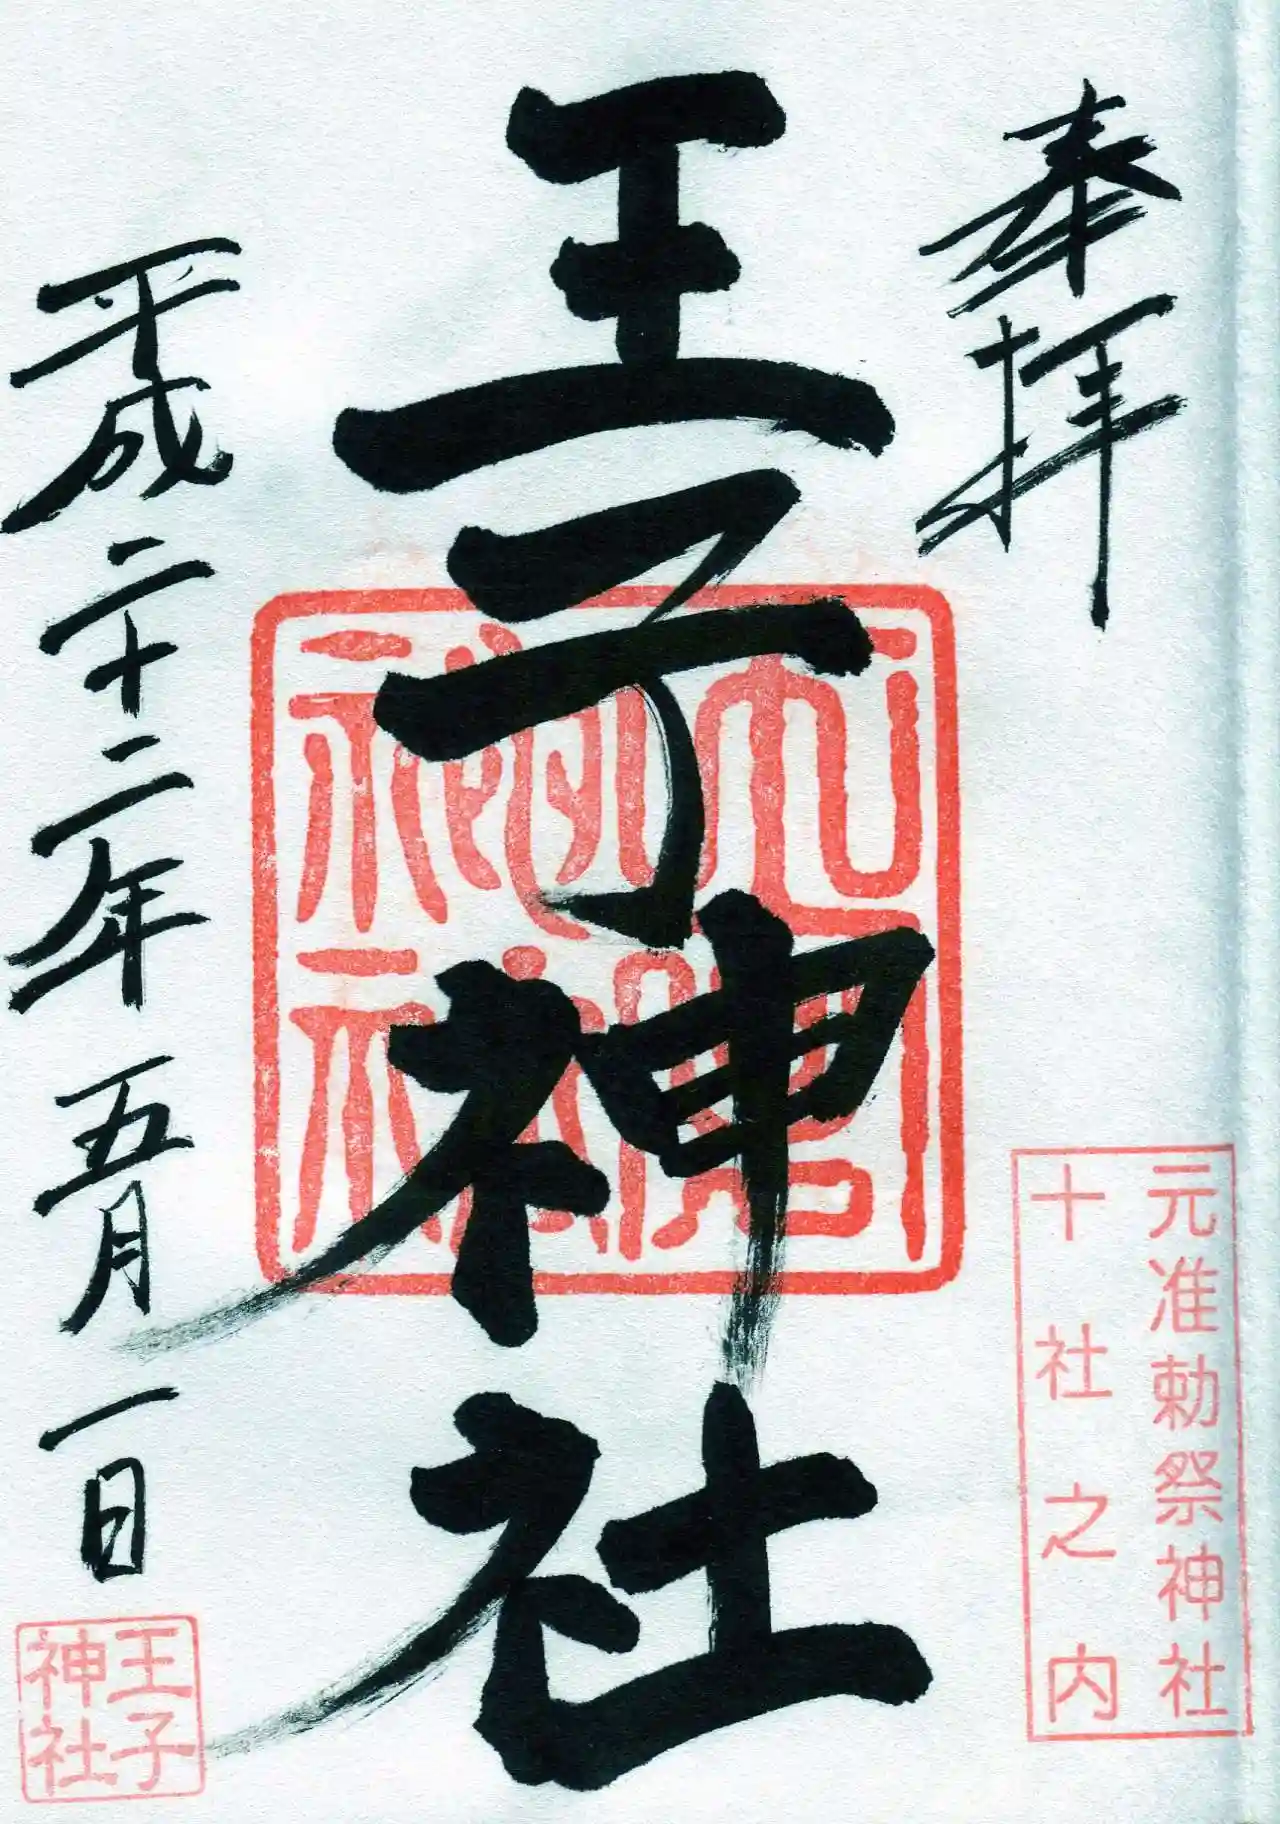 奉拝
元准勅祭神社
十社之内
王子神社
平成二十二年五月一日
王子
神社